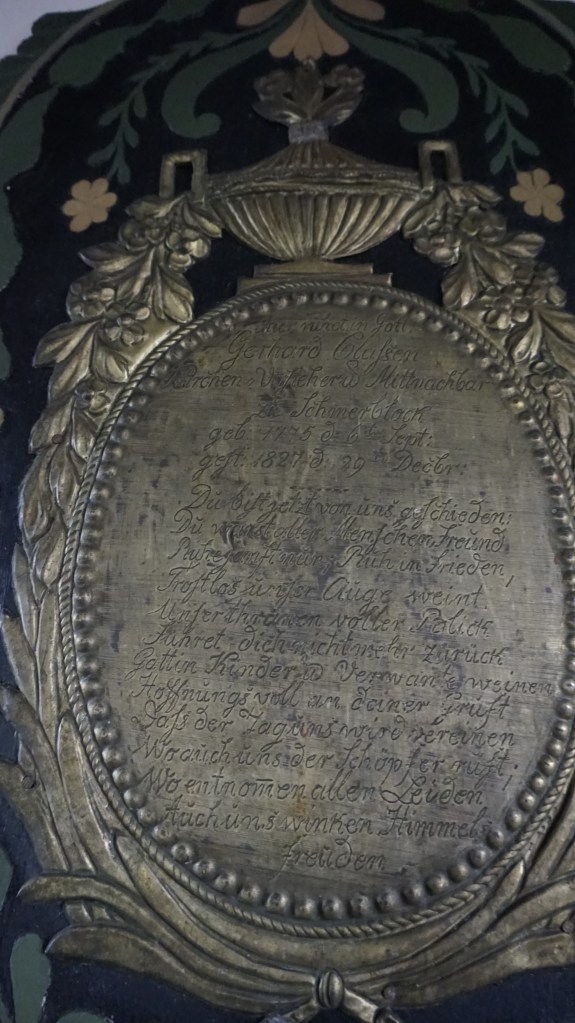 nun in Gott
Gerhard Claßen
Kirchen Vorscher u Mittnachbar
zu Schönerblock
geb. 1775 d. 6ten Sept:
gest. 1827 d. 29ten Decbr:
Du bist jetzt von uns geschieden:
Du warst aller Menschen Freund
Ruhe sanft nun: Ruh in Frieden,
Trostlos unser Auge weint.
Unser thränen voller Blick
Führet dich nicht mehr zurück
Gattin Kinder u Verwante weinen
Hoffnungsvoll an deiner Gruft
Daß der Tag uns wird vereinen
Wo auch uns der Schöpfer ruft.
Wo entnom̄en allen Leiden
Auch uns winken Himmels
freuden.